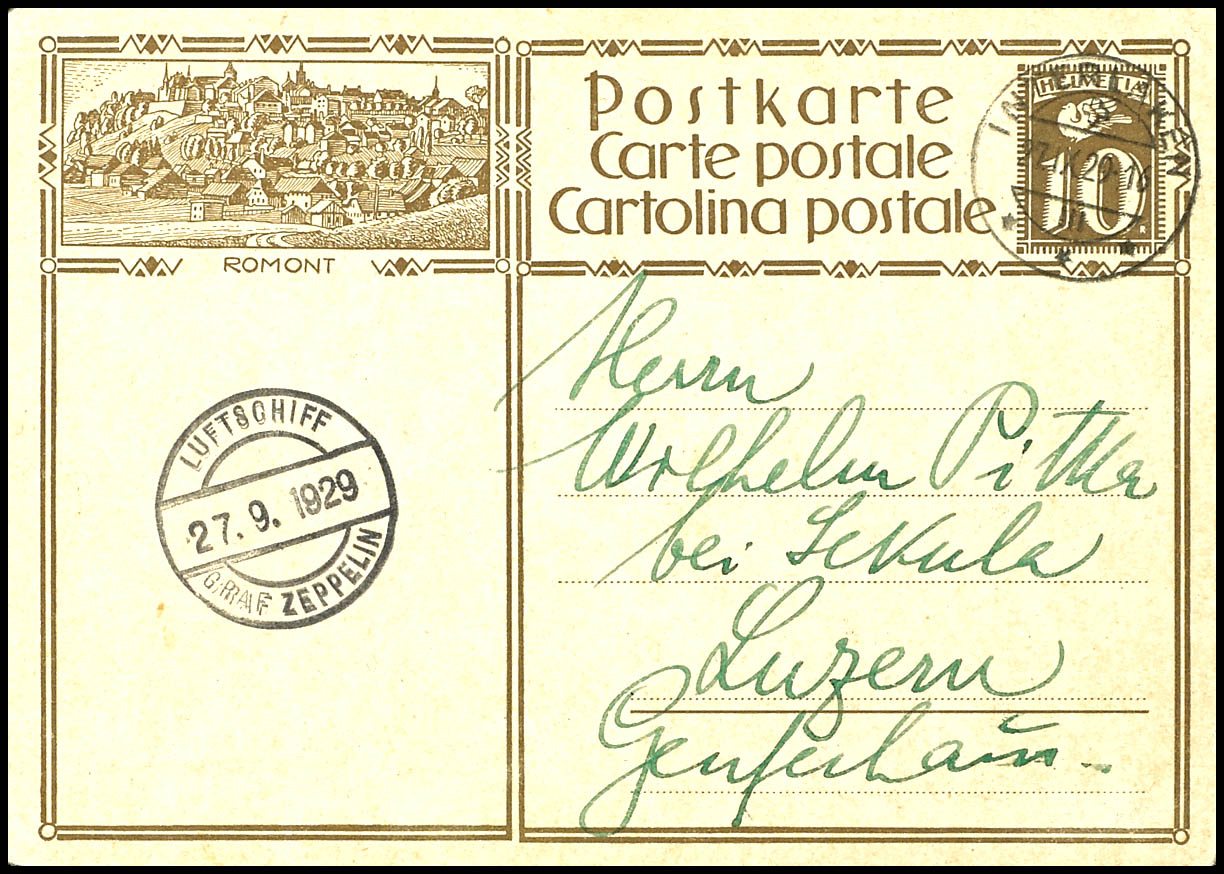 Postkarte
Carte postale
Cartolina postale
HELVETIA
10
INTERLAKEN
27.IX.29-16
ROMONT
LUFTSCHIFF
27.9.1929
GRAF ZEPPELIN
Herrn
Wilhelm Pitka
bei Sekula
Luzern